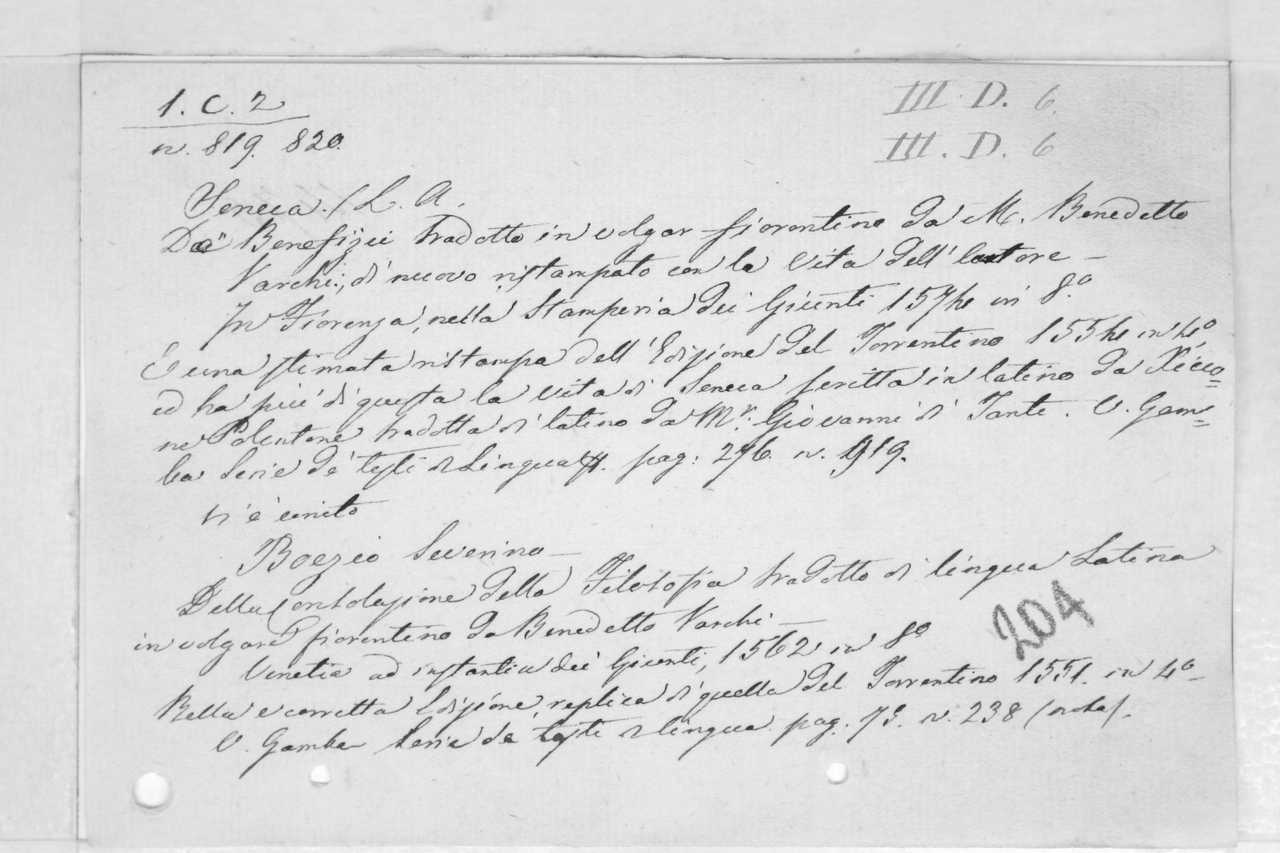 1. C. 2
III D. 6.
n. 819. 820.
III. D. 6
Seneca. (L. A.
De' Benefizii tradotto in volgar fiorentino da M. Benedetto
Varchi, di nuovo ristampato con la vita dell'autore —
In Fiorenza, nella Stamperia dei Giunti 1574 in 8.º
È una stimata ristampa dell'Edizione del Torrentino 1554 in 4º,
ed ha più di questa la vita di Seneca scritta in latino da Xicco=
ne Polentone tradotta di latino da Mr. Giovanni di Tante. V. Gam=
ba Serie de' testi di Lingua pag: 276. n. 919.
vi è unito
Boezio Severino —
Della Consolazione della Filosofia tradotto di lingua Latina
in volgare fiorentino da Benedetto Varchi —
204
Venetia ad instantia dei Giunti, 1562 in 8º
Bella e corretta Edizione, replica di quella del Torrentino 1551. in 4º —
V. Gamba Serie de testi di lingua pag. 73. n. 238 (nota).